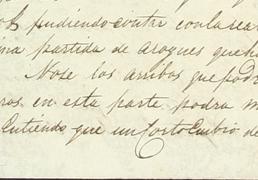 pudiendo contar con la rea
na partida de Azogues que h
No se los arribos que pod
ros en esta parte podra m
Entiendo que un corto Embio de